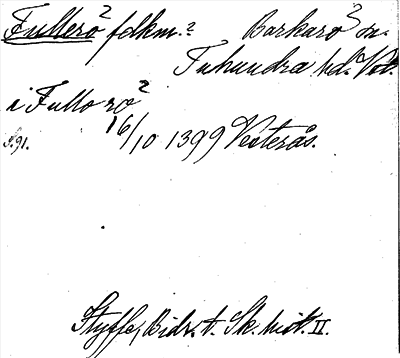 Fullerö² fdkm.² Barkarö³ sn.
Tuhundra hd. Vstm.
i Fulloro²
16/10 1399 Vesterås.
S. 91.
Styffe, Bidr. t. Sk. hist. II.